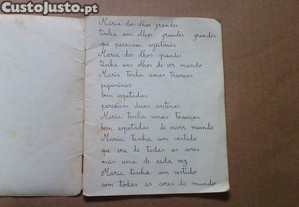 CustoJusto.pt
Maria dos olhos grandes
tinha uns olhos grandes grandes
que pareciam azeitonas
Maria dos olhos grandes
tinha uns olhos de ver mundo
Maria tinha umas tranças
pequeninas
bem espetadas
pareciam duas antenas
Maria tinha umas tranças
bem espetadas de ouvir mundo
Maria tinha um vestido
que era de todas as cores
mas uma de cada vez
Maria tinha um vestido
com todas as cores do mundo